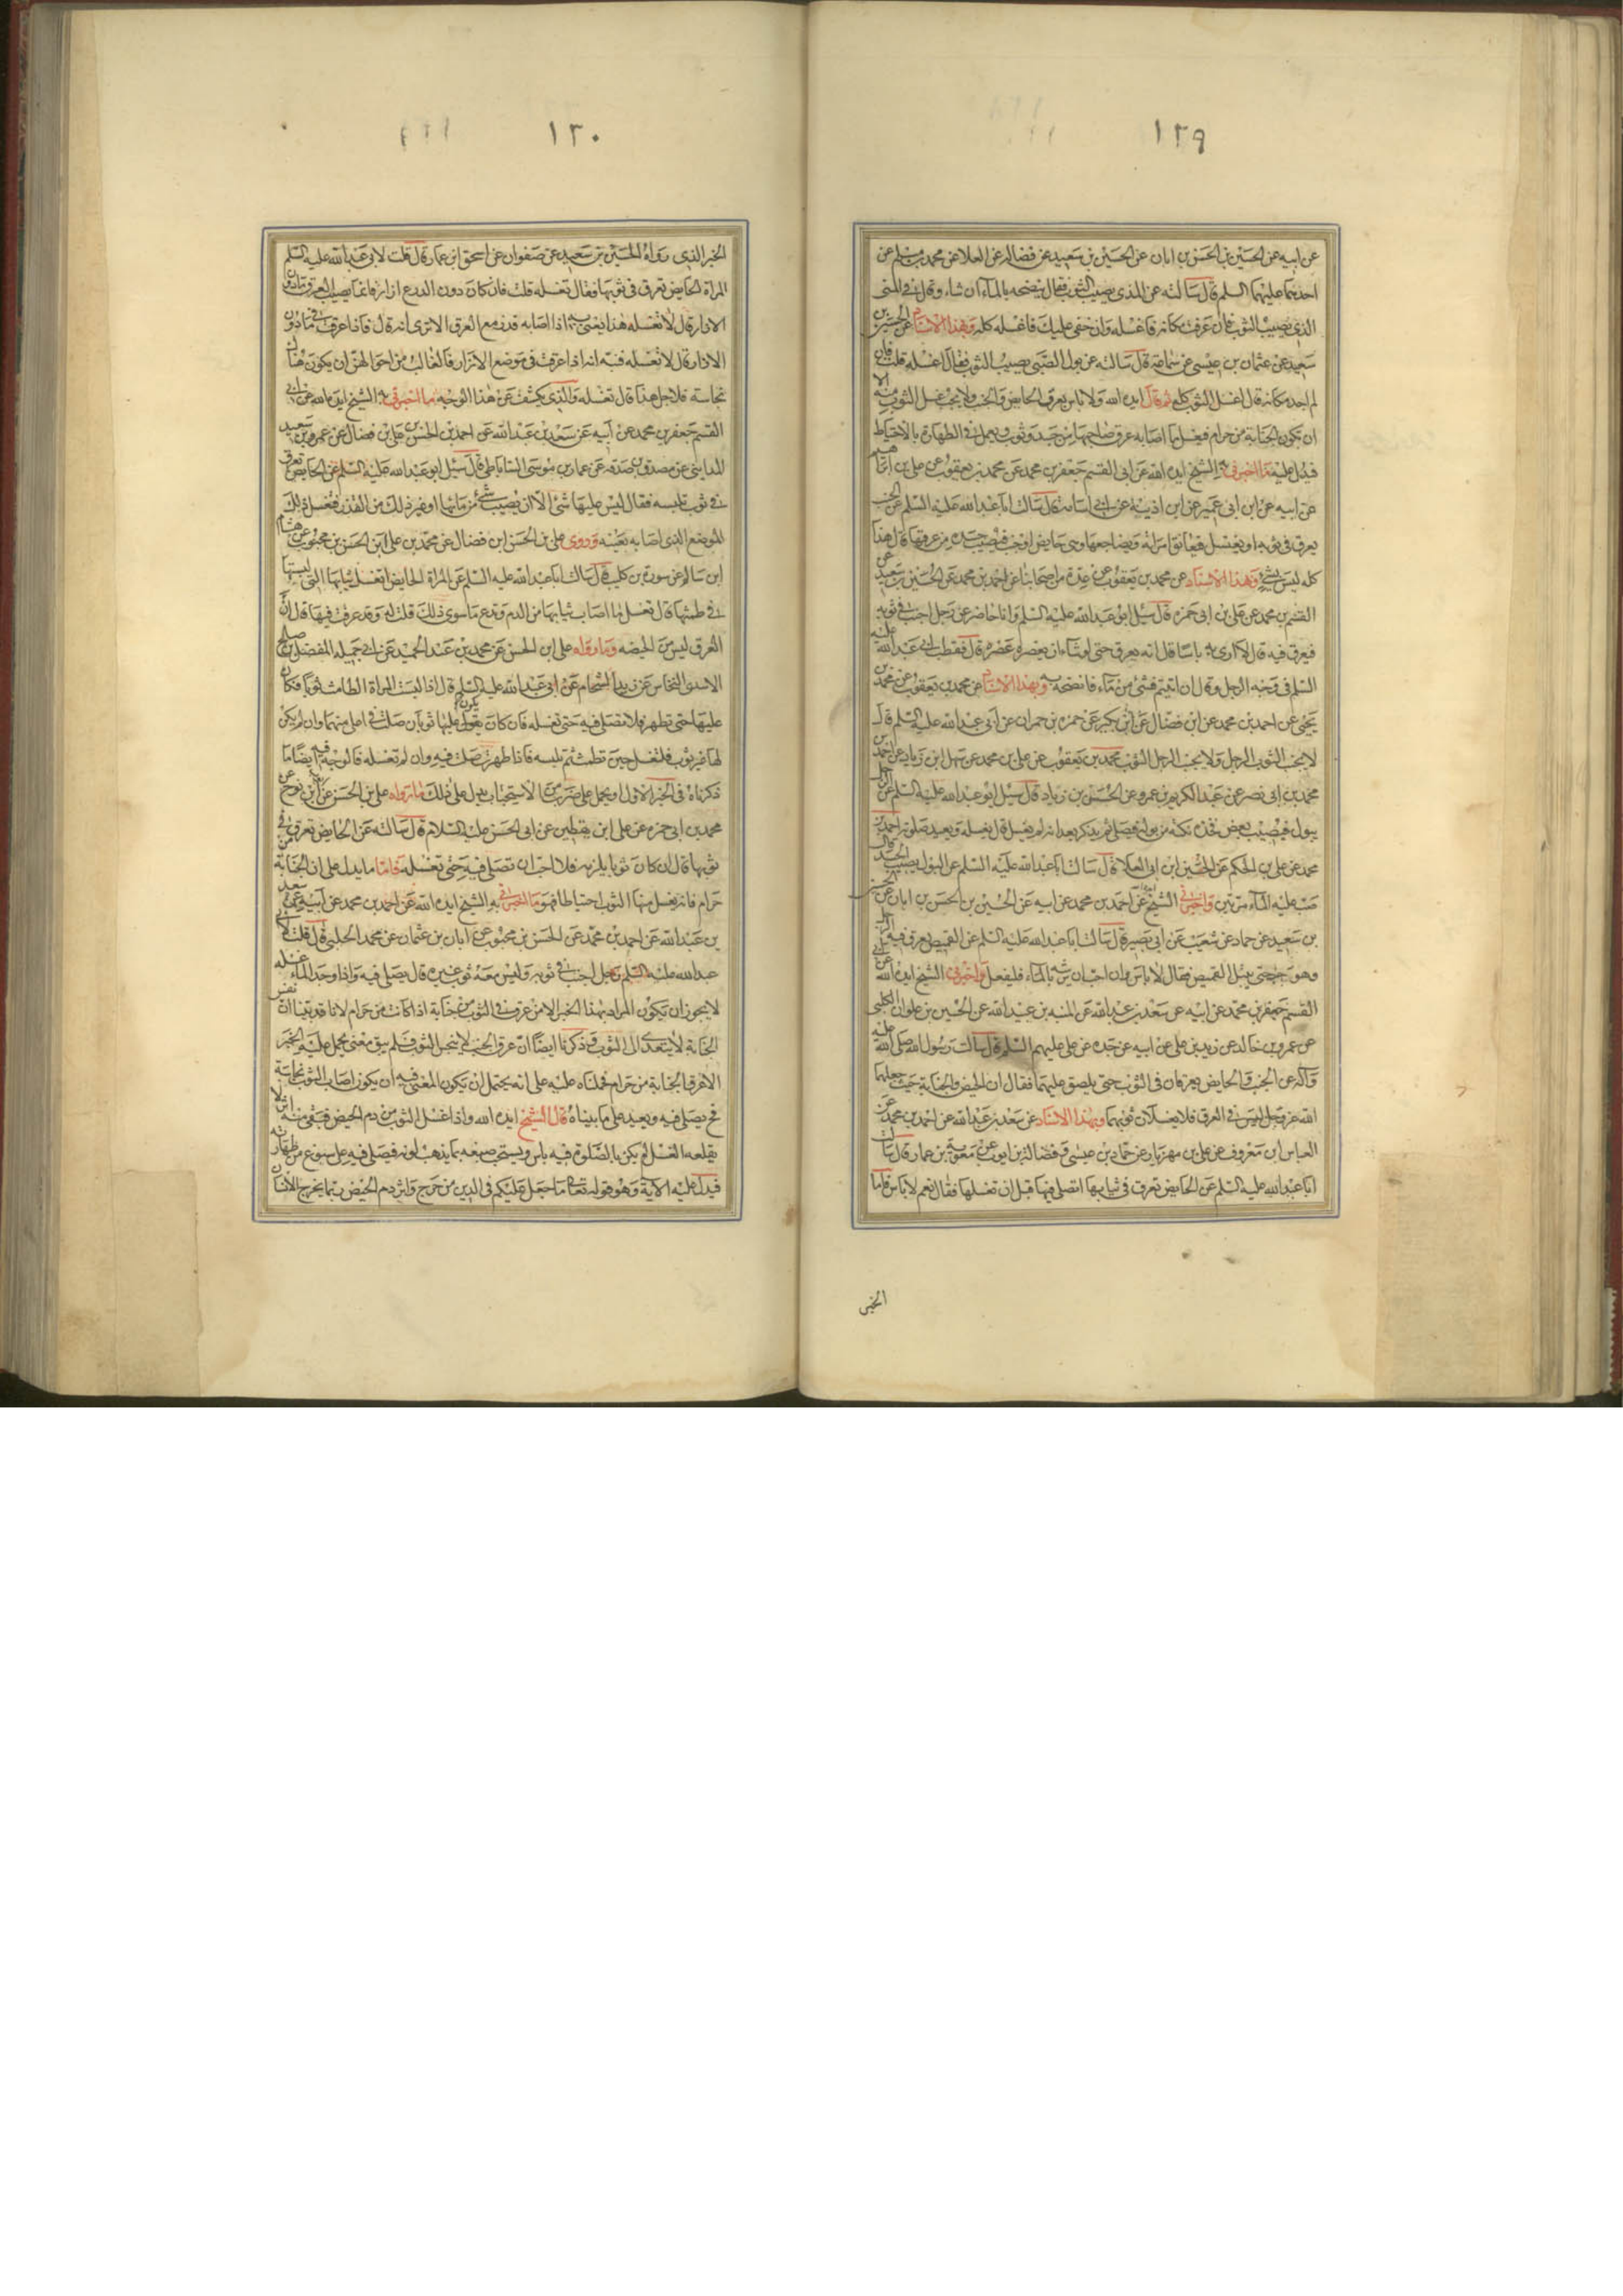 ١٢٩
عن ابيه عن الحسين بن الحسن بن ابان عن الحسين بن سعيد عن فضاله عن العلا عن محمد بن مسلم عن
احدهما عليهما السلم قال سالته عن المذى يصيب الثوب فقال ينضحه بالماء ان شاء وقال فى المنى
الذى يصيب الثوب فان عرفت مكانه فاغسله وان خفى عليك فاغسله كله وبهذا الاسناد عن الحسين بن
سعيد عن عثمان بن عيسى عن سماعة قال سالته عن بول الصبى يصيب الثوب فقال اغسله قلت فان
لم اجد مكانه قال اغسل الثوب كله ثم قال ايده الله ولا باس بعرق الحايض والجنب ولا يجب غسل الثوب منه الا
ان تكون الجنابة من حرام فغسل ما اصابه عرق صاحبها من جسد وثوب ويعمل فى الطهارة بالاحتياط
فيدل عليه ما اخبرنى به الشيخ ايده الله عن ابى القسم جعفر بن محمد عن محمد بن يعقوب عن على بن ابراهيم
عن ابيه عن ابن ابى عمير عن ابن اذينة عن ابى اسامة قال سالت ابا عبد الله عليه السلم عن الجنب
يعرق فى ثوبه او يغتسل فيعانق امراته ويضاجعها وهى حايض او جنب فيصيب جسده من عرقها قال هذا
كله ليس بشئ وبهذا الاسناد عن محمد بن يعقوب عن عدة من اصحابنا عن احمد بن محمد عن الحسين بن سعيد عن
القسم بن محمد عن على بن ابى حمزه قال سئل ابو عبد الله عليه السلم وانا حاضر عن رجل اجنب فى ثوبه
فيعرق فيه قال لا ارى به باسا قال انه يعرق حتى لو شاء ان يعصره عصره قال فقطب ابى عبد الله عليه
السلم فى وجه الرجل وقال ان ابيتم فشئ من ماء فانضحه به وبهذا الاسناد عن محمد بن يعقوب عن محمد بن
يحيى عن احمد بن محمد عن ابن فضال عن ابن بكير عن حمزه بن حمران عن ابى عبد الله عليه السلم قال
لا يجنب الثوب الرجل ولا يجنب الرجل الثوب محمد بن يعقوب عن على بن محمد عن سهل ابن زياد عن احمد بن
محمد بن ابى نصر عن عبد الكريم بن عمرو عن الحسن بن زياد قال سئل ابو عبد الله عليه السلم عن الرجل
يبول فيصيب بعض فخذه نكتة من بوله فيصلى ثم يذكر بعد انه لم يغسل قال يغسله ويعيد صلوته احمد بن
محمد عن على بن الحكم عن الحسين ابن ابى العلا قال سالت ابا عبد الله عليه السلم عن البول يصيب الجسد قال
صب عليه الماء مرتين واخبرنى الشيخ عن احمد بن محمد عن ابيه عن الحسين بن الحسن بن ابان عن الحسين
بن سعيد عن حماد عن شعيب عن ابى بصير قال سالت ابا عبد الله عليه السلم عن القميص يعرق فيه الرجل
وهو جنب حتى يبتل القميص فقال لا باس وان احب ان يرشه بالماء فليفعل واخبرنى الشيخ ايده الله عن ابى
القسم جعفر بن محمد عن ابيه عن سعد بن عبد الله عن المنبه بن عبيد الله عن الحسين بن علوان الكلبى
عن عمرو بن خالد عن زيد بن على عن ابيه عن جده عن على عليهم السلم قال سالت رسول الله صلى الله عليه
وآله عن الجنب والحايض يعرقان فى الثوب حتى يلصق عليهما فقال ان الحيض والجنابة حيث جعلهما
الله عز وجل ليس فى العرق فلا يغسلان ثوبهما وبهذا الاسناد عن سعد بن عبد الله عن احمد بن محمد عن
العباس بن معروف عن على بن مهزيار عن حماد بن عيسى وفضالة بن ايوب عن معوية بن عمار قال سالت
ابا عبد الله عليه السلم عن الحايض تعرق فى ثيابها اتصلى فيها قبل ان تغسلها فقال نعم لا باس فاما
الخبر
١٣٠
الخبر الذى رواه الحسين بن سعيد عن صفوان عن اسحق ابن عمار قال قلت لابى عبد الله عليه السلم
المراة الحايض تعرق فى ثوبها فقال تغسله قلت فان كان دون الدرع ازار فانما يصيب العرق ما دون
الازار قال لا تغسله هذا يعنى به اذا اصابه قذر مع العرق الا ترى انه قال فاذا عرقت فى ما دون
الازار قال لا تغسله فنبه انه اذا عرقت فى موضع الازار فالغالب من احوالهن ان يكون هناك
نجاسة فلاجل هذا قال تغسله والذى يكشف عن هذا الوجه ما اخبرنى به الشيخ ايده الله عن ابى
القسم جعفر بن محمد عن ابيه عن سعد بن عبد الله عن احمد بن الحسن بن على بن فضال عن عمرو بن سعيد
المداينى عن مصدق بن صدقه عن عمار بن موسى الساباطى قال سئل ابو عبد الله عليه السلم عن الحايض تعرق
فى ثوب تلبسه فقال ليس عليها شئ الا ان يصيب شئ من مائها او غير ذلك من القذر فتغسل ذلك
الموضع الذى اصابه بعينه وروى على بن الحسن ابن فضال عن محمد بن على ابن الحسن بن محبوب عن هشام
ابن سالم عن سورة بن كليب قال سالت ابا عبد الله عليه السلم عن المراة الحايض اتغسل ثيابها التى لبستها
فى طمثها قال تغسل ما اصاب ثيابها من الدم وتدع ما سوى ذلك قلت له وقد عرقت فيها قال ان
العرق ليس من الحيضه وما رواه على ابن الحسن عن محمد بن عبد الحميد عن ابى جميله المفضل بن صالح
الاسدى النخاس عن زيد الشحام عن ابى عبد الله عليه السلم قال اذا لبست المراة الطامث ثوبا فكان
عليها حتى تطهر فلا تصلى فيه حتى تغسله فان كان يكون عليها ثوبان صلت فى اعلى منهما وان لم يكن
لها غير ثوب فلتغسل حين تطمث ثم تلبسه فاذا طهرت صلت فيه وان لم تغسله فالوجه فيه ايضا ما
ذكرناه فى الخبر الاول او يحمل على ضرب من الاستحباب يدل على ذلك ما رواه على بن الحسن عن ايوب بن نوح عن
محمد بن ابى حمزه عن على ابن يقطين عن ابى الحسن عليه السلام قال سالته عن الحايض تعرق فى
ثوبها قال ان كان ثوبا يلزمه فلا احب ان تصلى فيه حتى تغسله فاما ما يدل على ان الجنابة من
حرام فانه يغسل منها الثوب احتياطا فهو ما اخبرنى به الشيخ ايده الله عن احمد بن محمد عن ابيه عن سعد
بن عبد الله عن احمد بن محمد عن الحسن بن محبوب عن ابان بن عثمان عن محمد الحلبى قال قلت لابى
عبد الله عليه السلم رجل اجنب فى ثوبه وليس معه ثوب غيره قال يصلى فيه واذا وجد الماء غسله
لا يجوز ان يكون المراد بهذا الخبر الا من عرق فى الثوب من جنابة اذا كانت من حرام لانا قد بينا ان نفس
الجنابة لا يتعدى الى الثوب وذكرنا ايضا ان عرق الجنب لا ينجس الثوب فلم يبق معنى يحمل عليه الخبر
الا عرق الجنابة من حرام فحملناه عليه على انه يحتمل ان يكون المعنى فيه ان يكون اصاب الثوب نجاسة
فح يصلى فيه ويعيد على ما بيناه قال الشيخ ايده الله واذا غسل الثوب من دم الحيض فبقى منه اثر لا
يقلعه الغسل لم يكن بالصلوة فيه باس ويستحب صبغه بما يذهب لونه فيصلى فيه على سبوغ من طهارته
فيدل عليه الاية وهو قوله تعالى ما جعل عليكم فى الدين من حرج واثر دم الحيض ربما يحرج الانسان